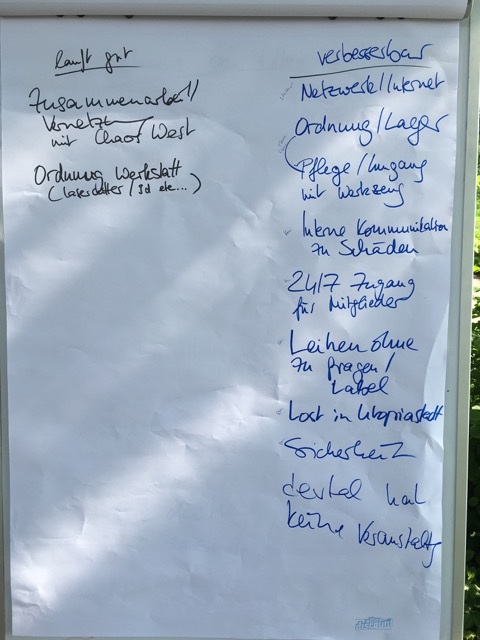 läuft gut
Zusammenarbeit/
Vernetz
mit Chaos West
Ordnung Werkstatt
(Lasercutter / 3d etc...)
verbesserbar
Netzwerk/Internet
Ordnung/Lager
Pflege/Umgang
mit Werkzeug
Interne Kommunikation
zu Schäden
24/7 Zugang
für Mitglieder
Leihen ohne
zu fragen/
Label
Lost in Utopiastadt
Sicherheit
devtal hat
keine Veranstaltg